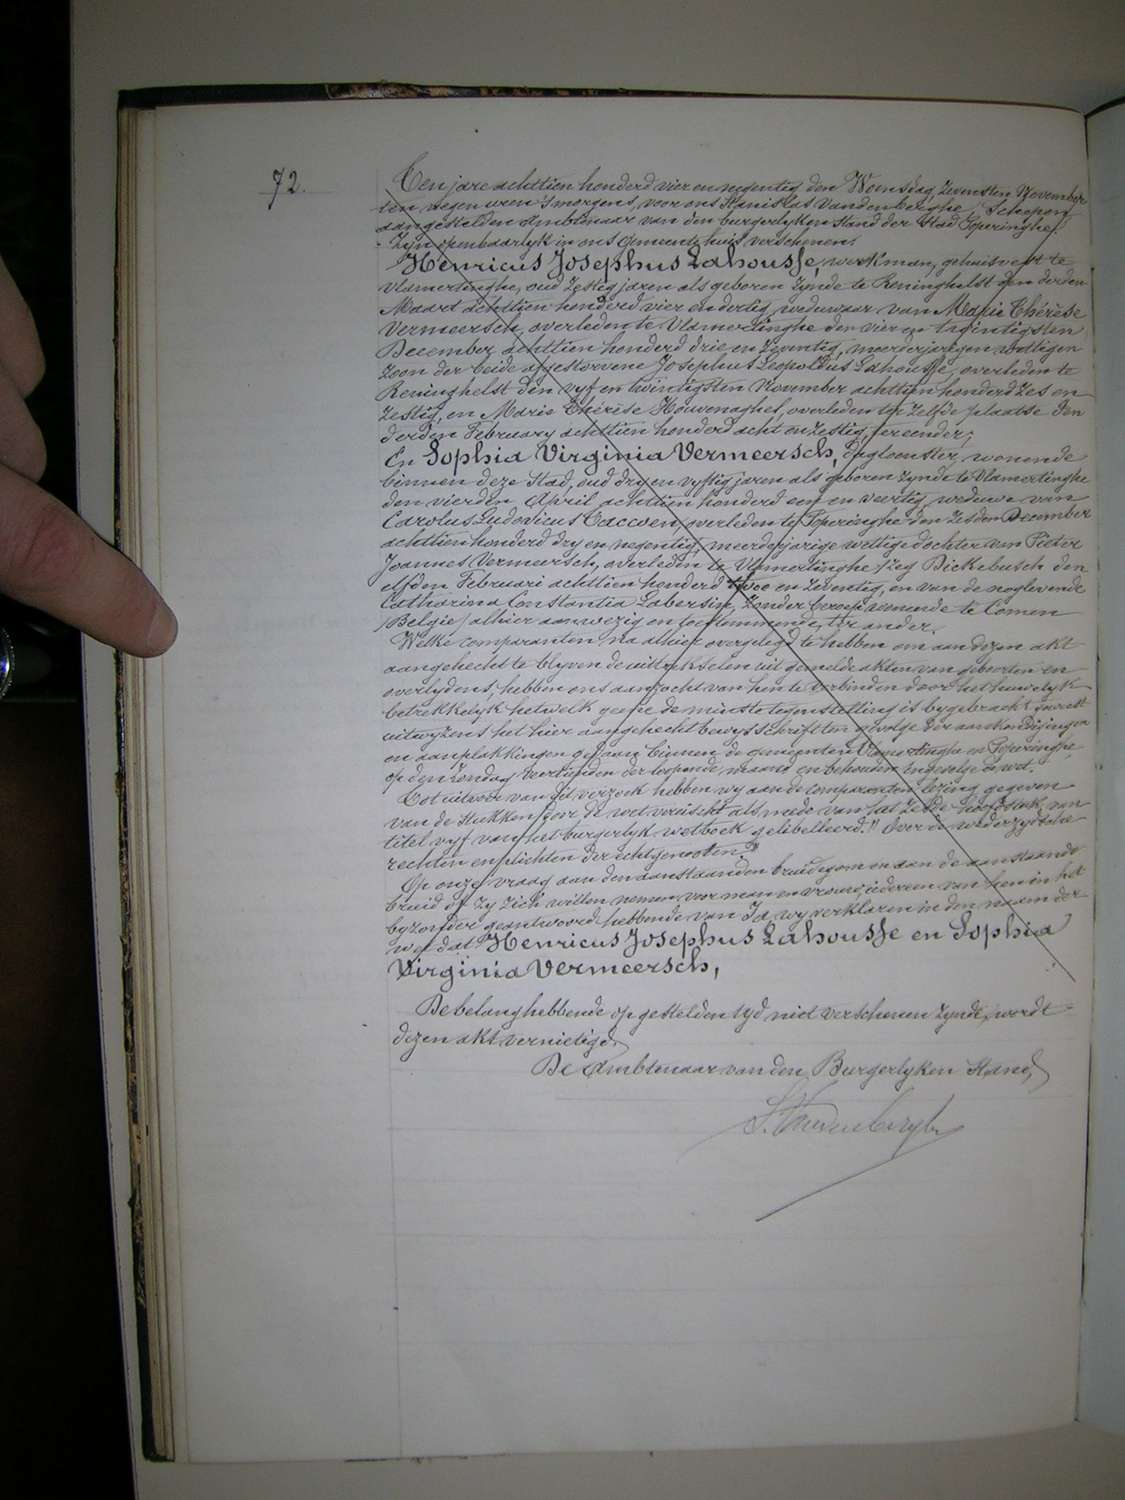 72.
Ten jare achttien honderd vier en negentig, den Woensdag, zevensten November
ten negen uren 's morgens, voor ons Stanislas Vandenberghe, Schepen
aangestelden Ambtenaar van den burgerlyken stand der Stad Poperinghe,
- Zyn openbaarlyk in ons Gemeentehuis verschenen:
Henricus Josephus Lahousse, werkman, gehuisvest te
Vlamertinghe, oud zestig jaren als geboren zynde te Reninghelst den derden
Maart achttien honderd vier en dertig, weduwaar van Marie Thérèse
Vermeersch, overleden te Vlamertinghe den vier en twintigsten
December achttien honderd drie en zeventig, meerderjarigen wettigen
zoon der beide afgestorvene Josephus Leopoldus Lahousse, overleden te
Reninghelst den vyf en twintigsten November achttien honderd zes en
zestig, en Marie Thérèse Houvenaghel, overleden ter zelfde plaatse den
derden February achttien honderd acht en zestig, ter eender;
En Sophia Virginia Vermeersch, dagloonster, wonende
binnen deze Stad, oud dry en vyftig jaren als geboren zynde te Vlamertinghe
den vierden April achttien honderd een en veertig, weduwe van
Carolus Ludovicus Caccoen, overleden te Poperinghe den zesden December
achttien honderd dry en negentig, meerderjarige wettige dochter van Pieter
Joannes Vermeersch, overleden te Vlamertinghe zeg Dickebusch den
elfden Februari achttien honderd twee en zeventig, en van de nog levende
Catharina Constantia Labersin, zonder beroep wonende te Comen
België, alhier aanwezig en toestemmende, ter ander.
Welke comparanten na alhier overgelegd te hebben om aan dezen akt
aangehecht te blyven de uittrekselen uit gemelde akten van geboorten en
overlydens, hebben ons aanzocht van hen te verbinden door het huwelyk
betrekkelyk hetwelk geene de minste tegenstelling is bygebracht zoo et
uitwyzens het hier aangehecht bewysschrift ten gevolge der aankondigingen
en aanplakkingen gedaan binnen de gemeenten Vlamertinghe en Poperinghe
op den Zondag vierden der loopende maand en behouden ingevolge de wet.
Tot uitvoer van dit verzoek hebben wy aan de comparanten lezing gegeven
van de stukken door de wet vereischt als mede van het zesde hoofdstuk van
titel vyf van het burgerlyk wetboek gelibelleerd: "Over de wederzydsche
rechten en plichten der echtgenooten."
Op onze vraag aan den aanstaanden bruidegom en aan de aanstaande
bruid of zy zich willen nemen voor man en vrouw, iedereen van hen in het
byzonder geantwoord hebbende van Ja, wy verklaren in den naam der
wet dat Henricus Josephus Lahousse en Sophia
Virginia Vermeersch,
De belanghebbende op gestelden tyd niet verschenen zynde, wordt
dezen akt vernietigd.
De Ambtenaar van den Burgerlyken Stand,
S. Vandenberghe